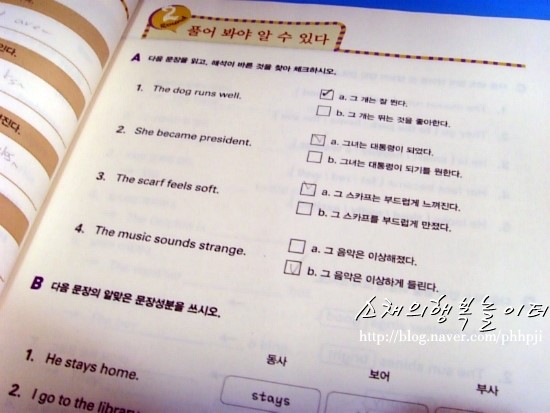 2
풀어 봐야 알 수 있다
A 다음 문장을 읽고, 해석이 바른 것을 찾아 체크하시오.
1. The dog runs well.
a. 그 개는 잘 뛴다.
b. 그 개는 뛰는 것을 좋아한다.
2. She became president.
a. 그녀는 대통령이 되었다.
b. 그녀는 대통령이 되기를 원한다.
3. The scarf feels soft.
a. 그 스카프는 부드럽게 느껴진다.
b. 그 스카프를 부드럽게 만졌다.
4. The music sounds strange.
a. 그 음악은 이상해졌다.
b. 그 음악은 이상하게 들린다.
B 다음 문장의 알맞은 문장성분을 쓰시오.
소채의행복놀이터
http://blog.naver.com/phhpji
동사 보어 부사
1. He stays home.
stays
2. I go to the library